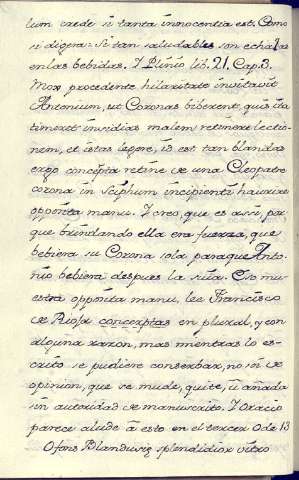 lum crede si tanta innocentia est. Como
si digera: Si tan saludables son echalas
en las bebidas. I Plinio lib. 21. Cap. 3.
Mox procedente hilaritate invitavit
Antonium, ut Coronas biberent, quis ita
timeret insidias malem retinere lectio-
nem, et istas legere, is est tan blandas
ergo concepta retine de una Cleopatre
corona in sciphum incipienti haurire
opposita manu. I creo, que es assi, por
que brindando ella era fuerza, que
bebiera su Corona sola para que Anto-
nio bebiera despues la suia. Eso mu-
estra opposita manu, lee Francisco
de Rioja concexptas en plural, y con
alguna razon, mas mientras lo es-
crito se pudiere conserbar, no in de
opinion, que se mude, quite, ú añada
sin autoridad de manuscrito. I Oracio
parece alude á esto en el tercer Ode 13
O fons Blanduviæ splendidior vitro